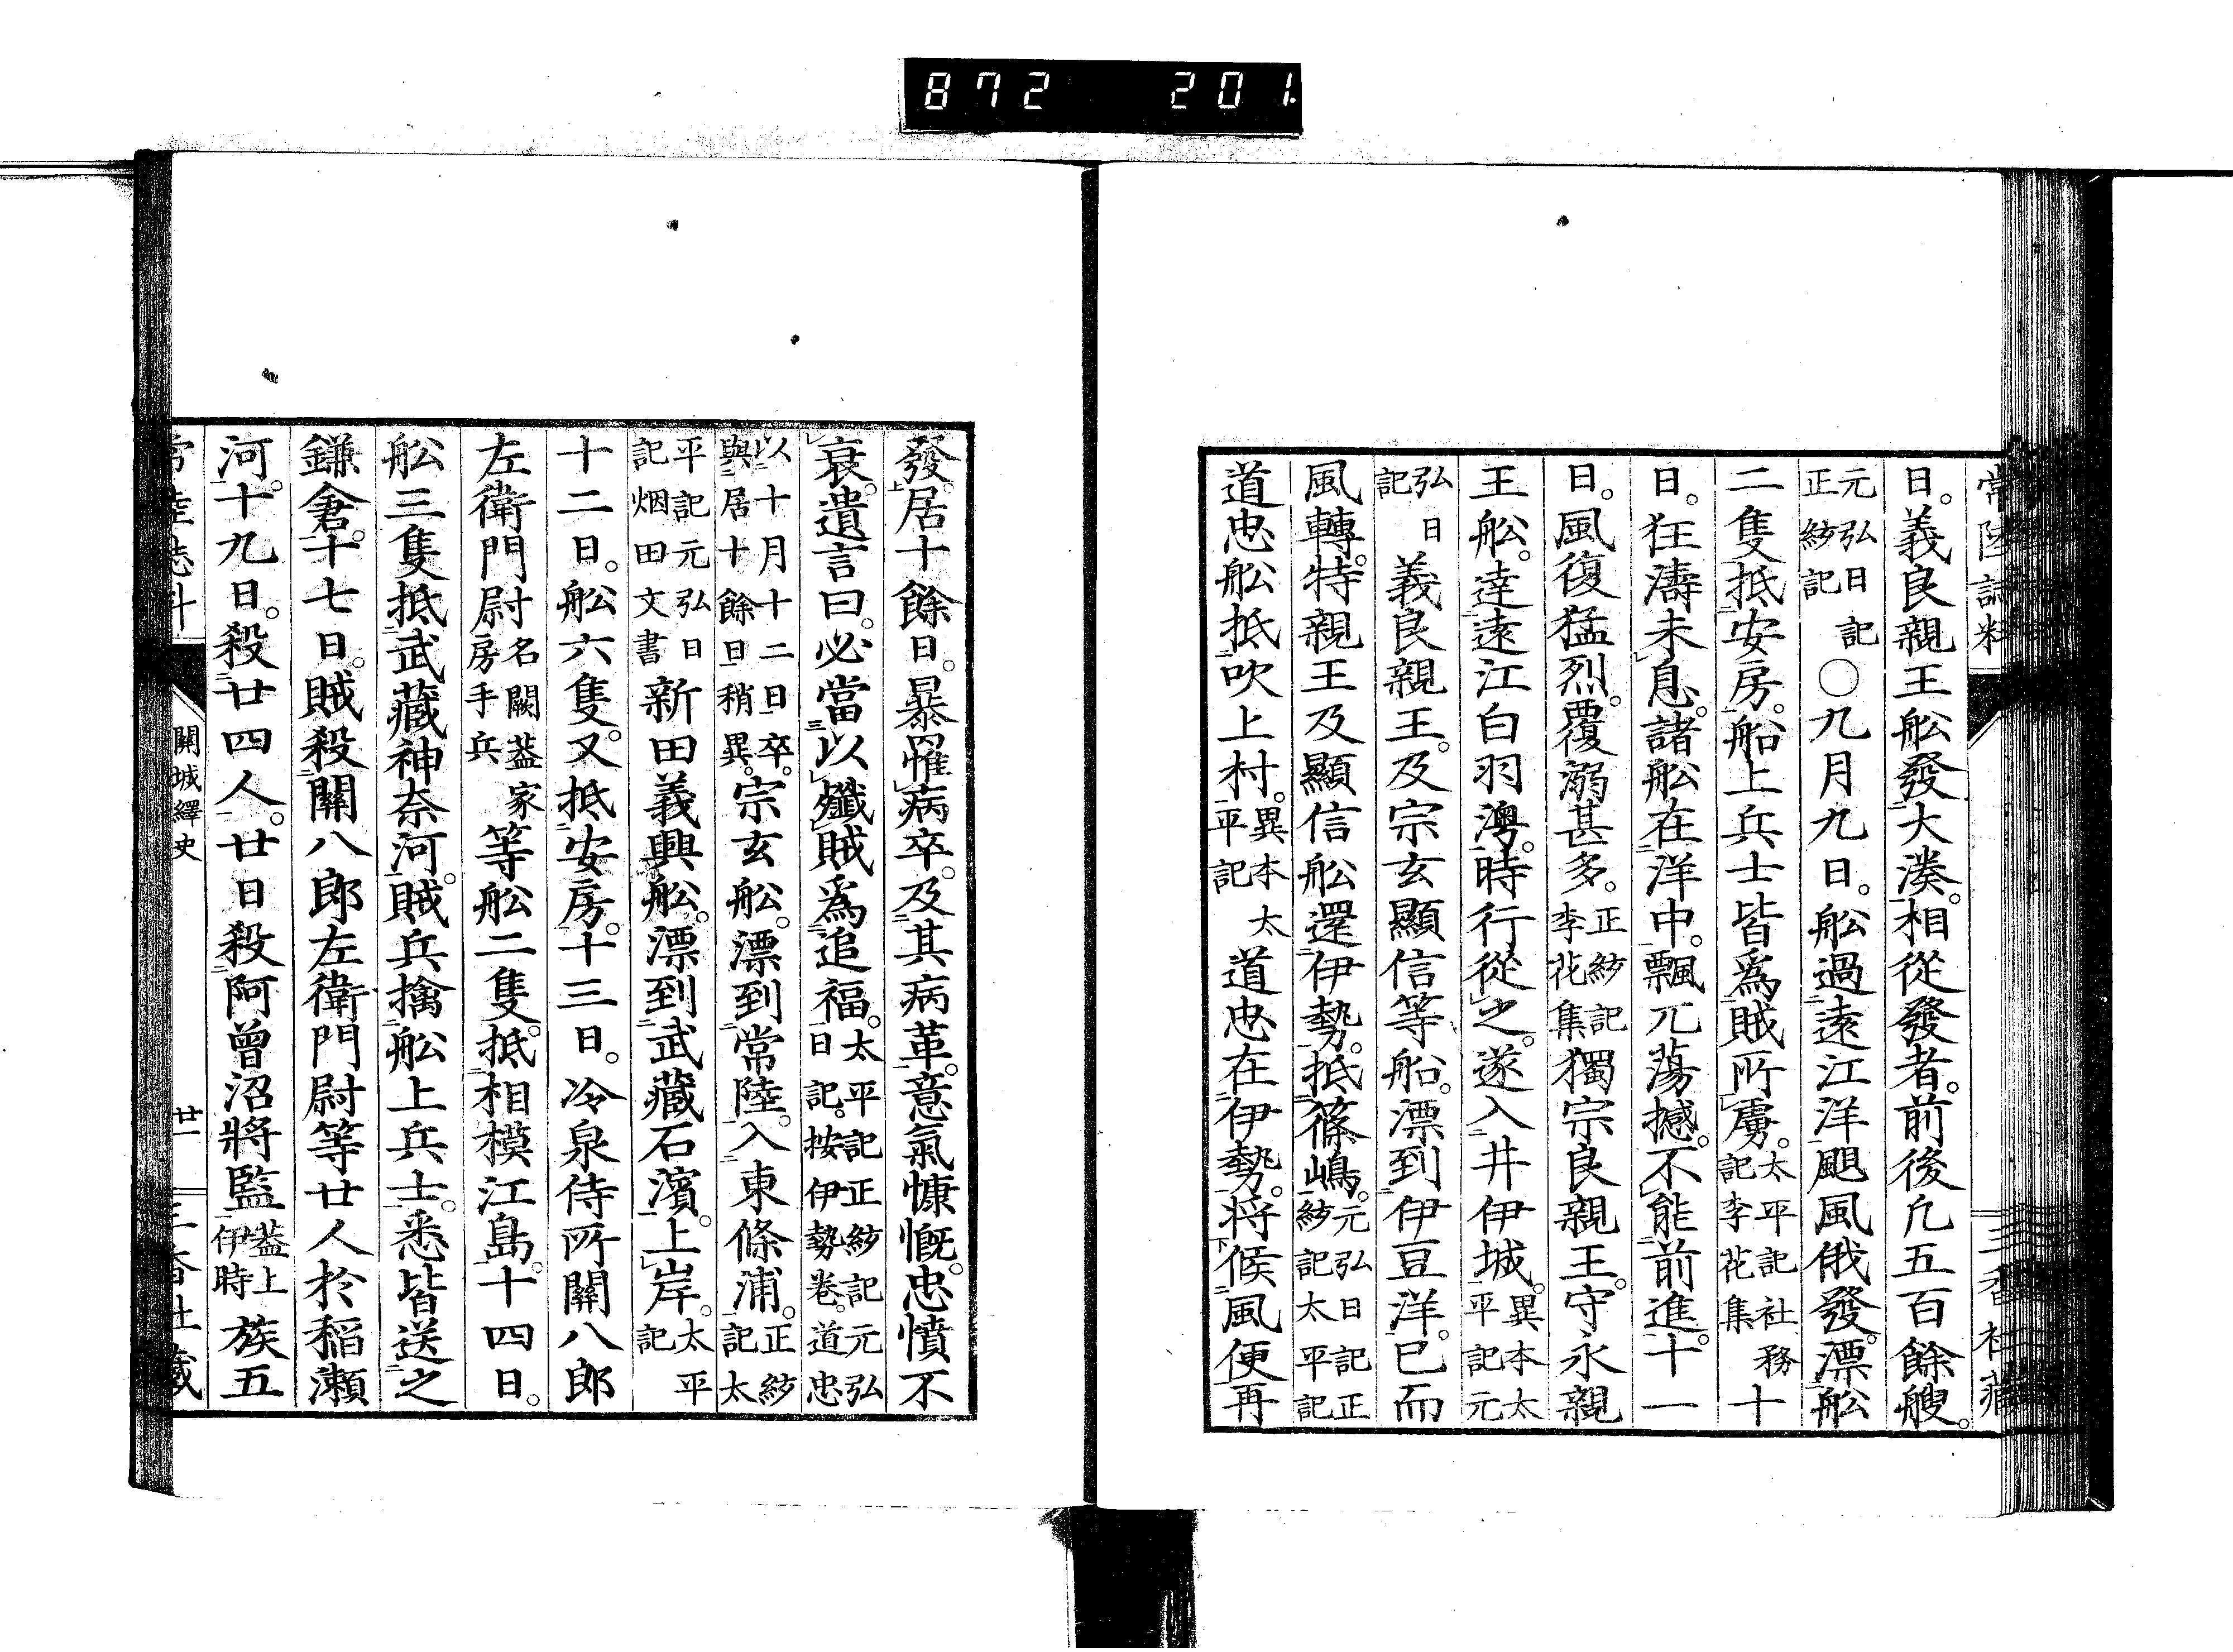 872 201.
常陸誌料
三香社藏
日。義良親王舩發大湊。相從發者。前後凢五百餘艘。
元弘日記正紗記〇九月九日。舩過遠江洋。颶風俄發。漂舩
二隻抵安房。船上兵士皆爲賊所虜。太平記社務記李花集十
日。狂濤未息。諸舩在洋中。飄兀蕩撼。不能前進。十一
日。風復猛烈。覆溺甚多。正紗記李花集獨宗良親王。守永親
王舩。達遠江白羽灣。時行從之。遂入井伊城。異本太平記元
弘日記義良親王。及宗玄顯信等船。漂到伊豆洋。已而
風轉。特親王及顯信舩還伊勢。抵篠嶋。元弘日記正紗記太平記
道忠舩抵吹上村。異本太平記道忠在伊勢。将候風便再
發。居十餘日。暴罹病卒。及其病革。意氣慷慨。忠憤不
衰。遺言曰。必當以殲賊爲追福。太平記正紗記元弘日記。按伊勢巻。道忠
以十月十二日卒。與居十餘日稍異。宗玄舩。漂到常陸。入東條浦。正紗記太
平記元弘日記烟田文書新田義興舩。漂到武藏石濱。上岸。太平記
十二日。舩六隻。又抵安房。十三日。冷泉侍所關八郎
左衛門尉名闕葢家房手兵等舩二隻。抵相模江島。十四日。
舩三隻抵武藏神奈河。賊兵擒舩上兵士。悉皆送之
鎌倉。十七日。賊殺關八郎左衛門尉等廿人於稲瀬
河。十九日。殺廿四人。廿日殺阿曾沼將監葢上伊時族五
常陸誌料
關城繹史
廿一
三香社藏